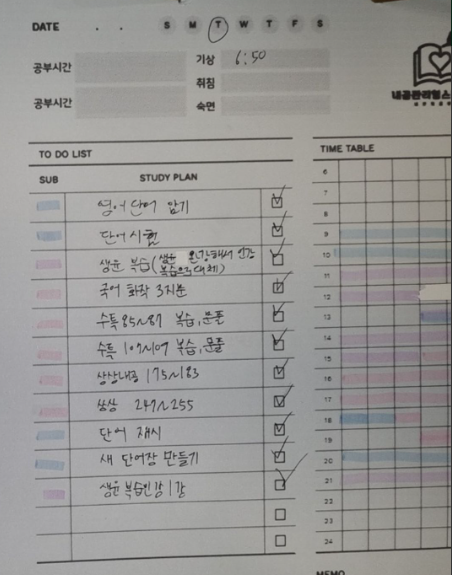 DATE . . S M T W T F S
공부시간
기상 6:50
취침
공부시간
숙면
내공관리헬스
TO DO LIST
TIME TABLE
SUB STUDY PLAN
영어 단어 암기
단어 시험
생윤 복습(생윤 완강해서 인강
복습으로 대체)
국어 화작 3지문
수특 85~87 복습, 문풀
수특 107~109 복습, 문풀
상상내공 175~183
상상 247~255
단어 재시
새 단어장 만들기
생윤 복습인강 1강
6
7
8
9
10
11
12
13
14
15
16
17
18
19
20
21
22
23
24
MEMO